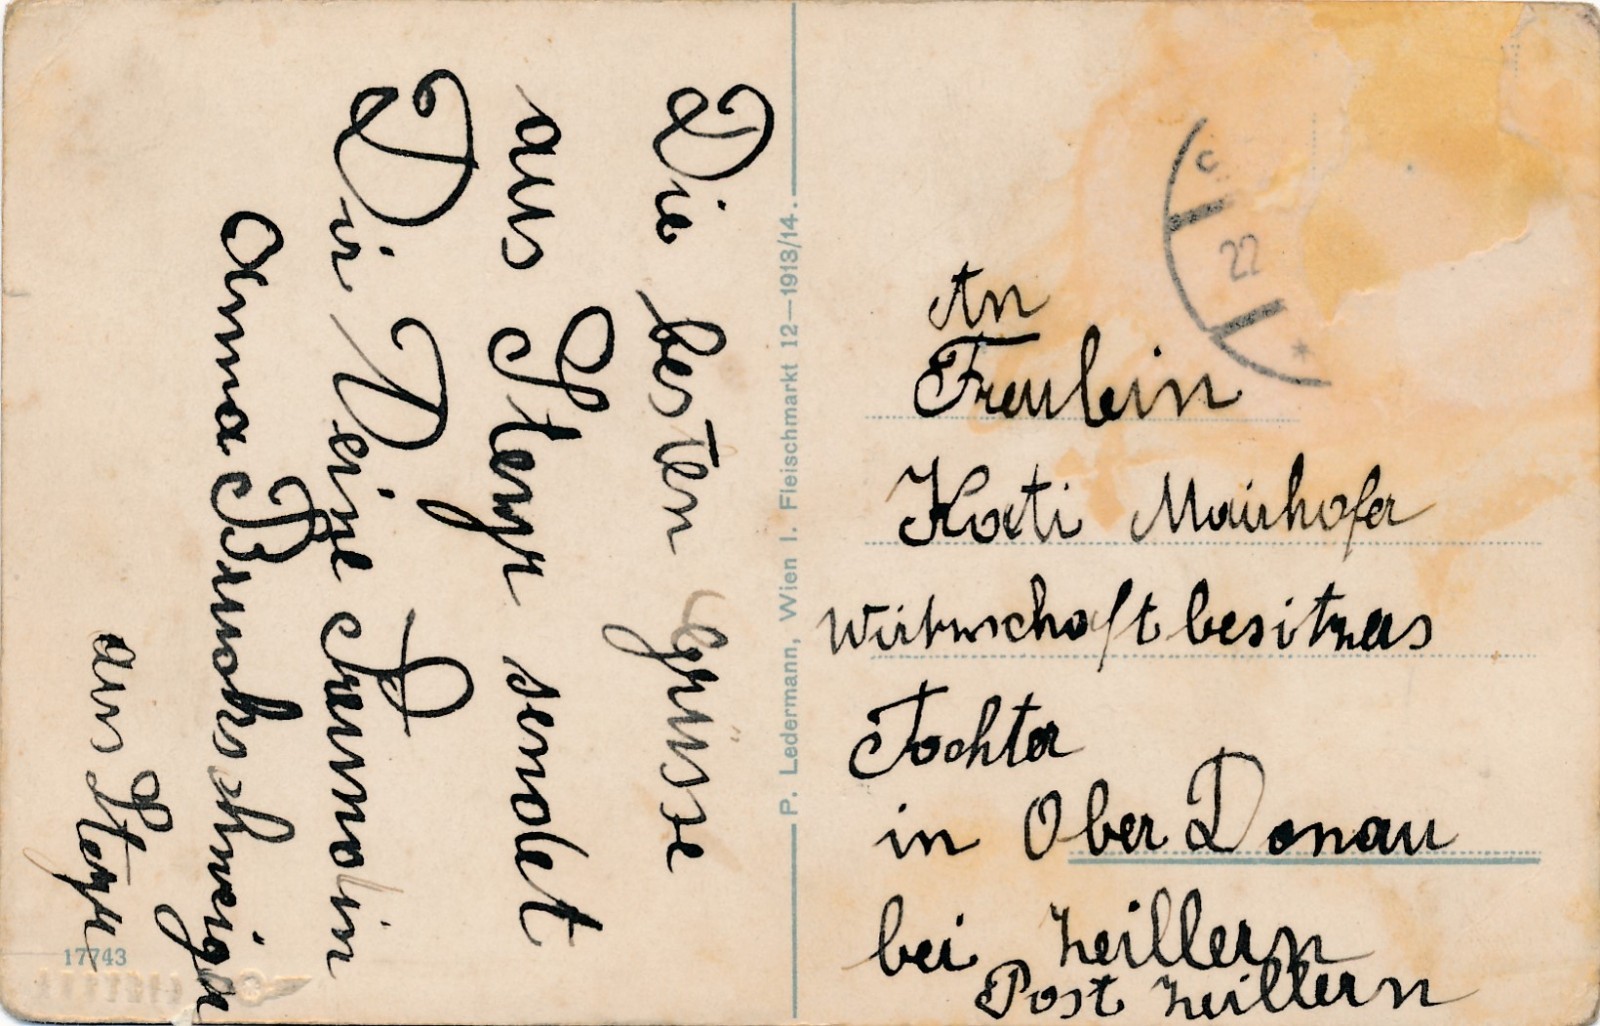 Die besten Grüsse
aus Steyr sendet
Dir Deine Freundin
Anna Bruckschweiger
aus Steyr
17743
P. Ledermann, Wien I. Fleischmarkt 12—1913/14.
C
22
*
An
Freulein
Kati Mairhofer
Wirtschaftbesitzers
Tochter
in Ober Donau
bei Zeillern
Post Zeillern